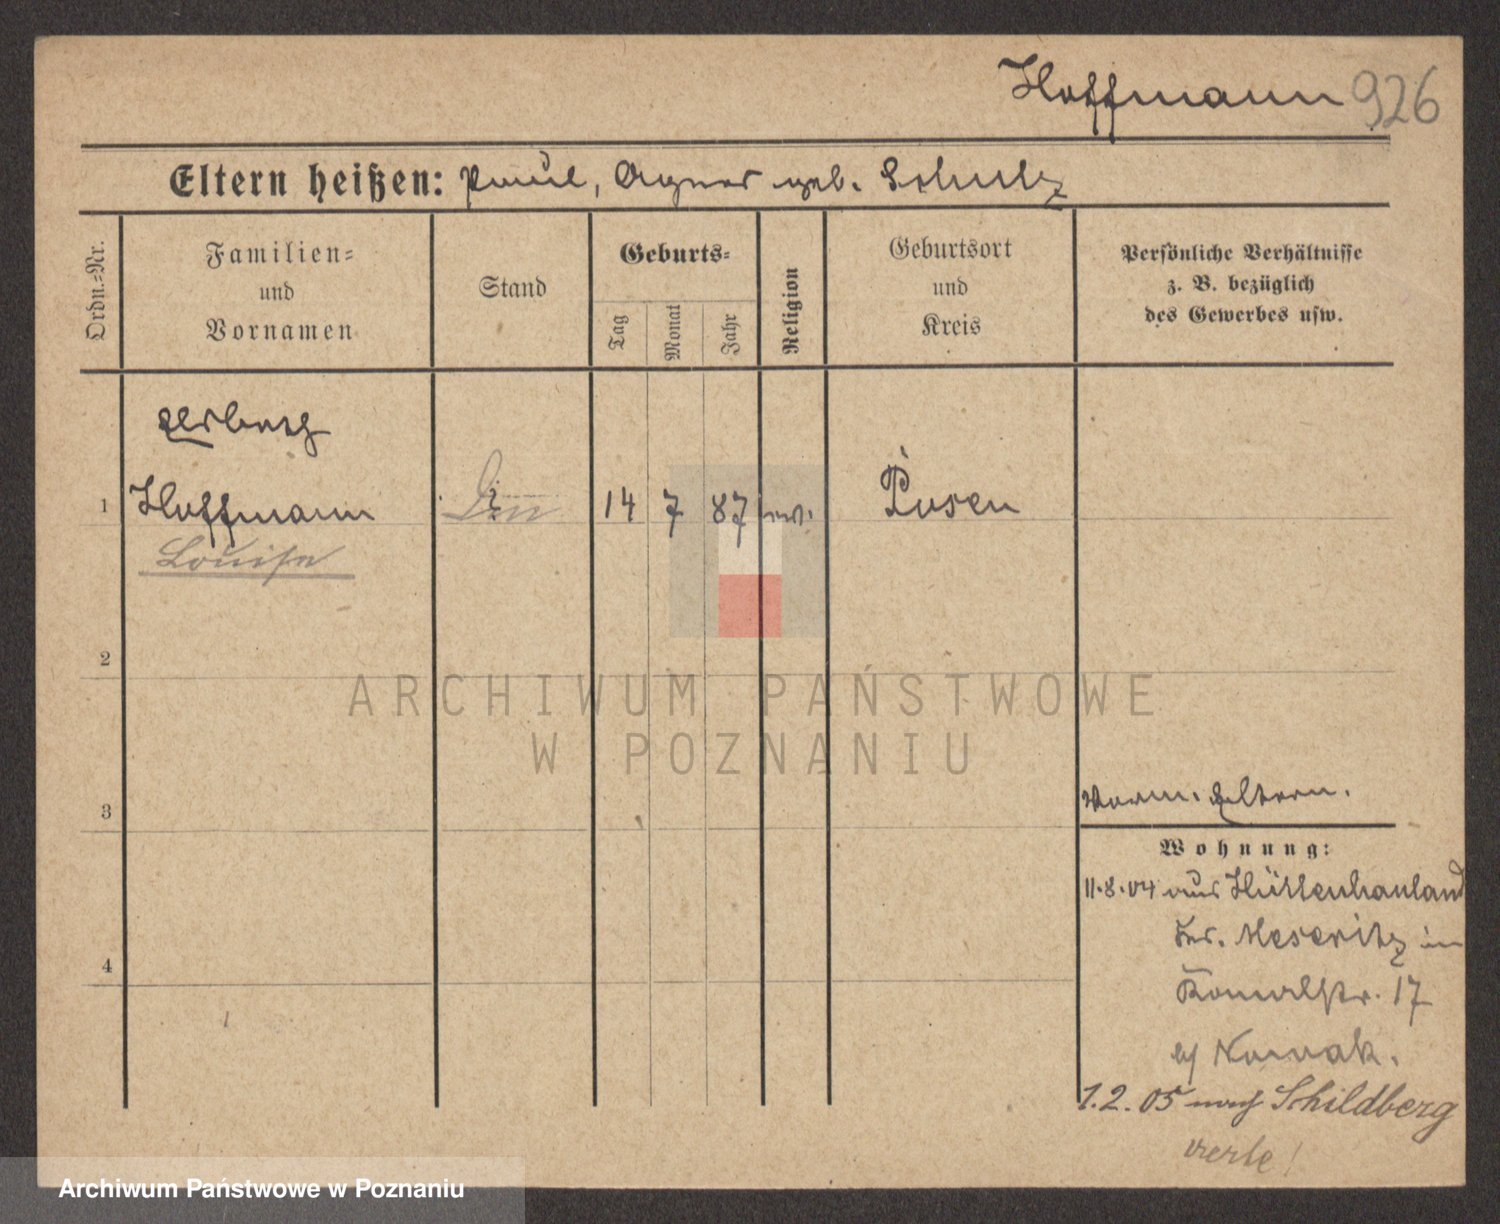 Hoffmann 926
Eltern heißen: Paul, Agnes geb. Schulz
Ordn.=Nr.
Familien=
und
Vornamen
Stand
Geburts=
Tag
Monat
Jahr
Religion
Geburtsort
und
Kreis
Persönliche Verhältnisse
z. B. bezüglich
des Gewerbes usw.
1 Hoffmann 14 7 87 ev. Posen
Louise
2
3
4
Eltern.
Wohnung:
11.8.04 aus Hüttenhauland
Kr. Meseritz in
17
Nowak.
1.2.05 nach Schildberg
ARCHIWUM PAŃSTWOWE
W POZNANIU
Archiwum Państwowe w Poznaniu